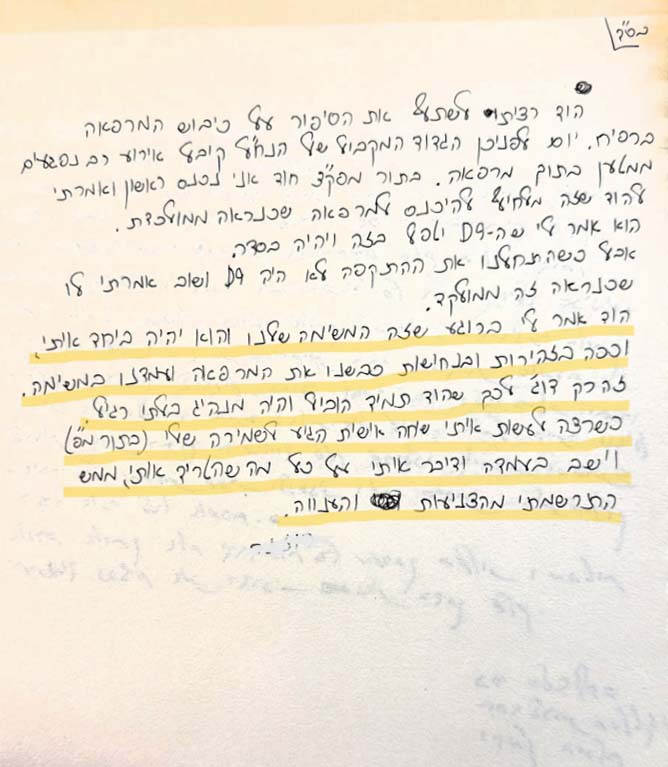 בס"ד
הוד רציתי לשתף את הסיפור על כיבוש המרפאה
ברפיח. יום לפניכן הגדוד המקביל של הנח"ל קיבל אירוע רב נפגעים
ממטען בתוך מרפאה. בתור מפק"צ חוד אני נכנס ראשון ואמרתי
להוד שזה מלחיץ להיכנס למרפאה שכנראה ממולכדת.
הוא אמר לי שה-D9 יטפל בזה ויהיה בסדר.
אבל כשהתחלנו את ההתקפה לא היה D9 ושוב אמרתי לו
שכנראה זה ממולקד.
הוד אמר לי ברוגע שזה המשימה שלנו והוא יהיה ביחד איתי,
וככה בזהירות ובנחישות כבשנו את המרפאה ועמדנו במשימה.
זה רק דוג' לכך שהוד תמיד הוביל והיה מנהיג בלתי רגיל.
כשרצה לעשות איתי שיחה אישית הגיע לשמירה שלי (בתור מ"פ)
וישב בעמדה ודיבר איתי על כל מה שהטריד אותי, ממש
התרשמתי מהצניעות והענווה.